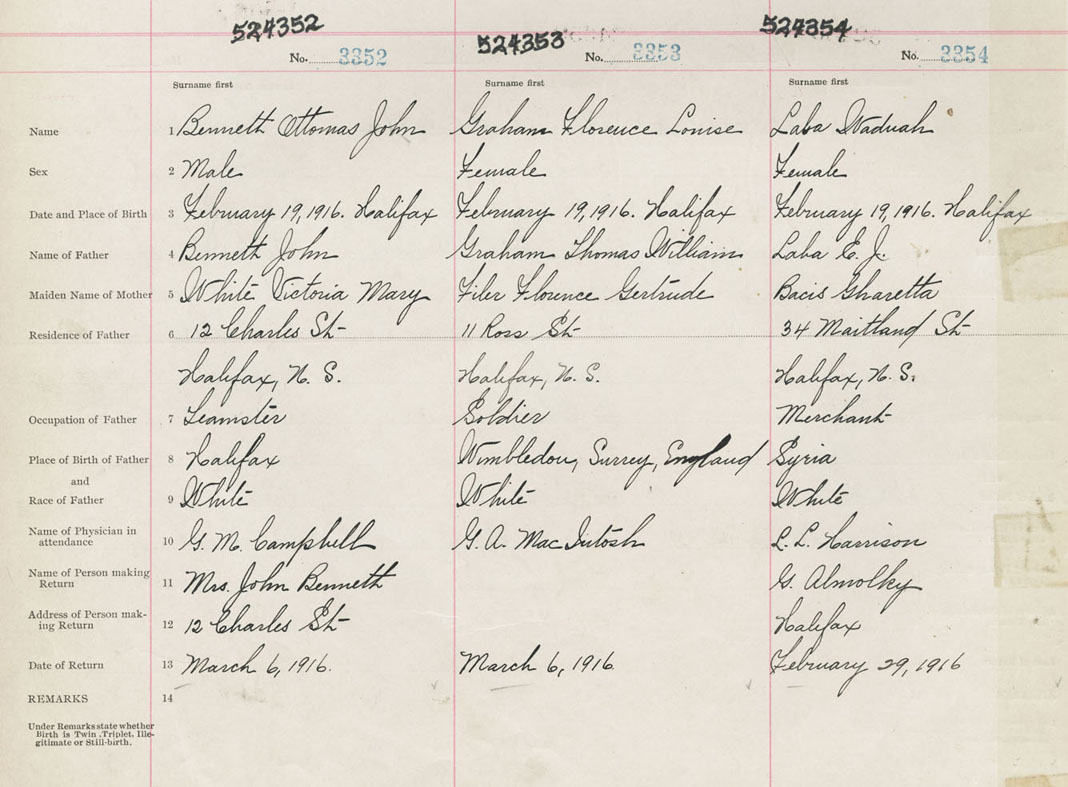 524352 524353 524354
No. 3352 No. 3353 No. 3354
Surname first Surname first Surname first
Name 1 Bennett Ottomas John Graham Florence Louise Laba Waduah
Sex 2 Male Female Female
Date and Place of Birth 3 February 19, 1916. Halifax February 19, 1916. Halifax February 19, 1916. Halifax
Name of Father 4 Bennett John Graham Thomas William Laba E. J.
Maiden Name of Mother 5 White Victoria Mary Filer Florence Gertrude Bacis Gharetta
Residence of Father 6 12 Charles St 11 Ross St 34 Maitland St
Halifax, N. S. Halifax, N. S. Halifax, N. S.
Occupation of Father 7 Teamster Soldier Merchant
Place of Birth of Father 8 Halifax Wimbledon, Surrey, England Syria
and
Race of Father 9 White White White
Name of Physician in
attendance 10 G. M. Campbell G. A. MacIntosh L. L. Harrison
Name of Person making
Return 11 Mrs. John Bennett G. Almolky
Address of Person mak-
ing Return 12 12 Charles St Halifax
Date of Return 13 March 6, 1916. March 6, 1916 February 29, 1916
REMARKS 14
Under Remarks state whether
Birth is Twin, Triplet, Ille-
gitimate or Still-birth.